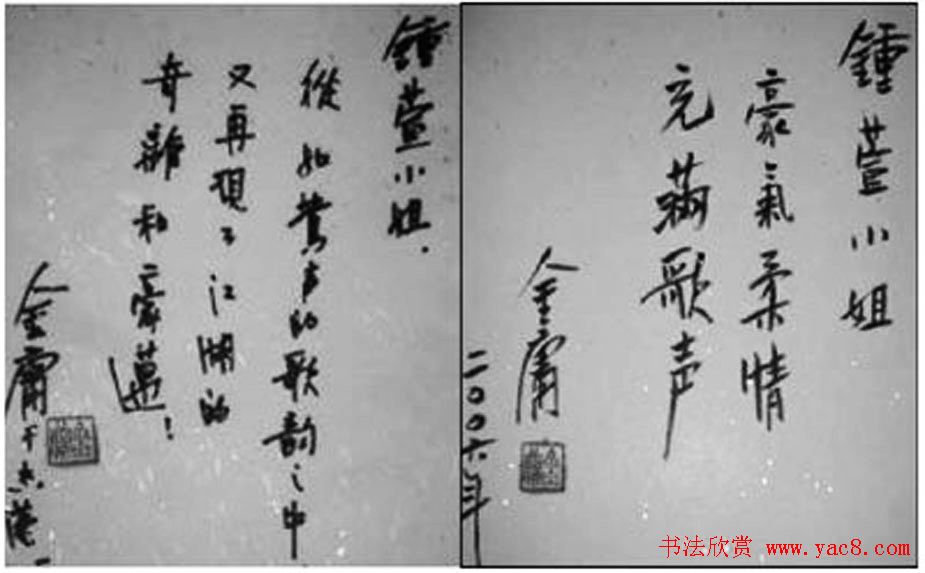 鍾萱小姐．
從如鶯声的歌韵之中
又再現了江湖的
奇離和豪邁！
金庸于香港
鍾萱小姐
豪氣柔情
充滿歌声
金庸
二〇〇六年
书法欣赏 www.yac8.com